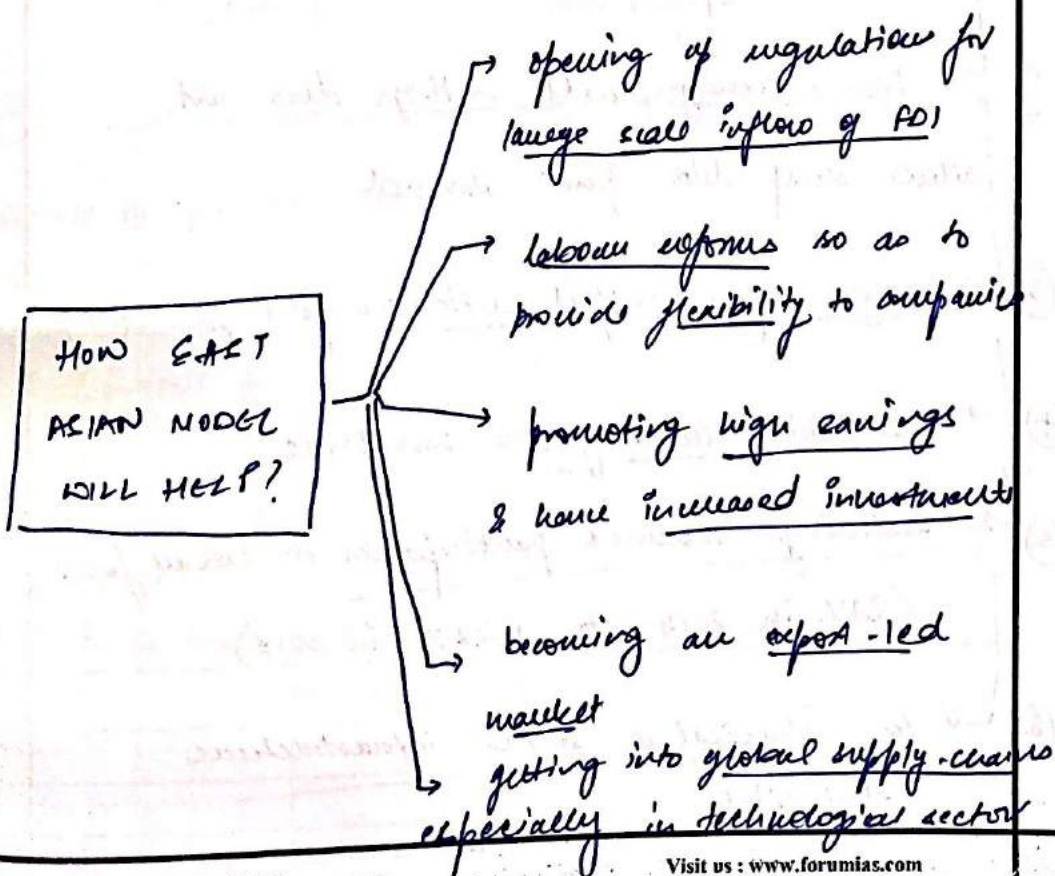 opening of regulation for
large scale inflow of FDI
labour reforms so as to
provide flexibility to companies
HOW EAST
ASIAN MODEL
WILL HELP?
promoting high savings
& hence increased investments
becoming an export-led
market
getting into global supply-chains
especially in technological sector
Visit us : www.forumias.com